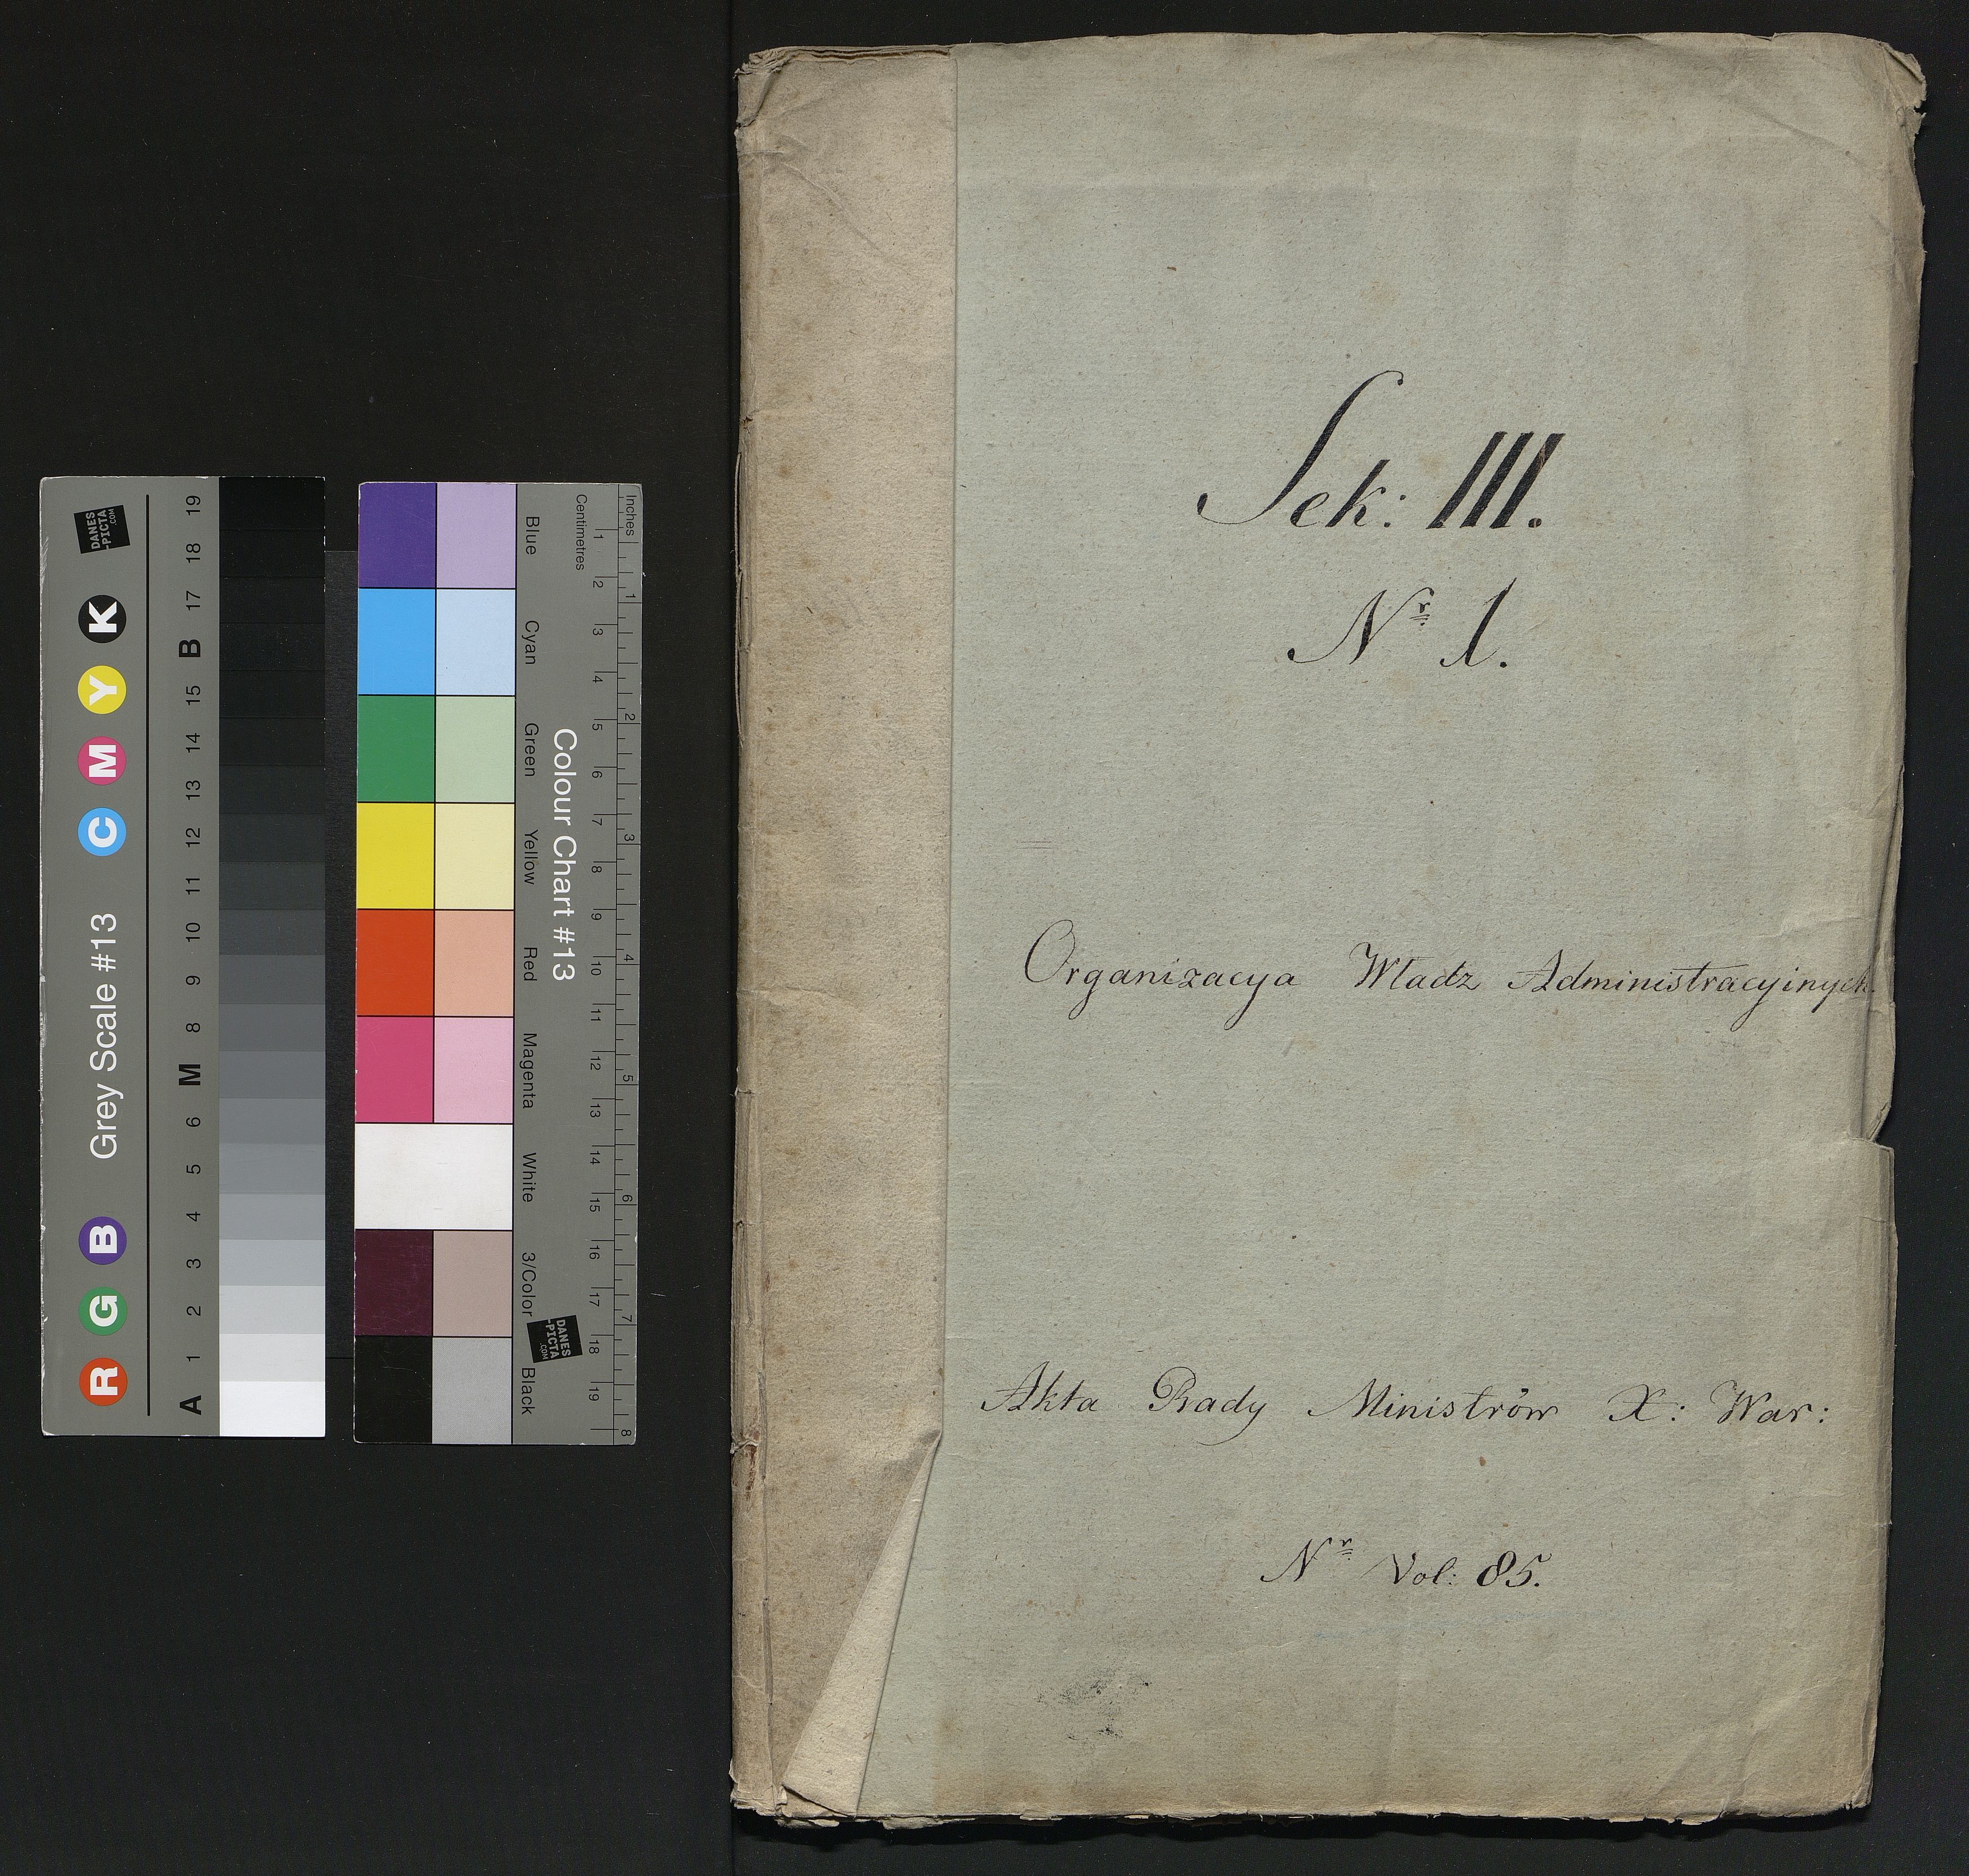 Sek: III.
Nr 1.
Organizacya Władz Administracyinych.
Akta Rady Ministrów X: War:
Nr Vol: 85.
Grey Scale #13
R G B C M Y K
A 1 2 3 4 5 6 M 8 9 10 11 12 13 14 15 B 17 18 19
DANES
-PICTA
.COM
Colour Chart #13
Blue Cyan Green Yellow Red Magenta White 3/Color Black
Centimetres
1 2 3 4 5 6 7 8 9 10 11 12 13 14 15 16 17 18 19
Inches
1 2 3 4 5 6 7 8
DANES
-PICTA
.COM